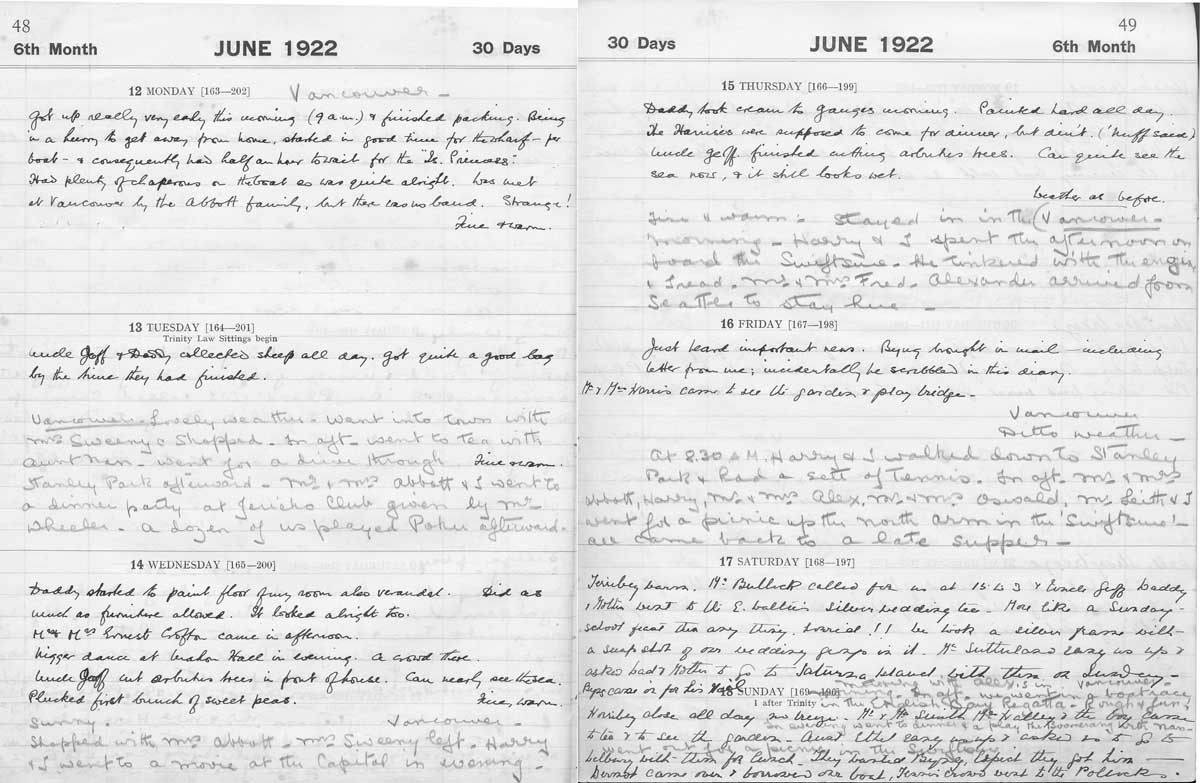 48
6th Month JUNE 1922 30 Days
12 MONDAY [163—202] Vancouver –
Got up really very early this morning (9 a.m.) & finished packing. Being
in a hurry to get away from home, started in good time for the wharf – per
boat – & consequently had half an hour to wait for the "Is. Princess".
Had plenty of chaperons on the boat so was quite alright. Was met
at Vancouver by the Abbott family, but there was no band. Strange!
Fine & warm.
13 TUESDAY [164—201]
Trinity Law Sittings begin
Uncle Geoff & Daddy collected sheep all day. Got quite a good bag
by the time they had finished.
Vancouver – Lovely weather – Went into town with
Mrs Sweeny & Shopped – In aft – went to Tea with
Aunt Nan – went for a drive through Fine & warm.
Stanley Park afterward – Mr & Mrs Abbott & I went to
a dinner party at Jericho Club given by Mr
Wheeler. – A dozen of us played Poker afterward –
14 WEDNESDAY [165—200]
Daddy started to paint floor of my room also verandah. Did as
much as furniture allowed. It looked alright too.
Mr & Mrs Ernest Crofton came in afternoon.
Nigger dance at Mahon Hall in evening. A crowd there.
Uncle Geoff cut arbutus trees in front of house. Can nearly see the sea.
Plucked first bunch of sweet peas. Fine, warm.
Sunny. Vancouver –
Shopped with Mrs Abbott – Mrs Sweeny left – Harry
& I went to a movie at the Capital in evening –
49
30 Days JUNE 1922 6th Month
15 THURSDAY [166—199]
Daddy took cream to Ganges morning. Painted hard all day.
The Harrises were supposed to come for dinner, but didn't. ('Nuff said)
Uncle Geoff finished cutting arbutus trees. Can quite see the
sea now, & it still looks wet.
Weather as before.
Fine & warm – Stayed in in the (Vancouver –
morning – Harry & I spent the afternoon on
board the Swiftsure – He tinkered with the engine
& I read. Mr & Mrs Fred. Alexander arrived from
Seattle to stay here –
16 FRIDAY [167—198]
Just heard important news. Byng brought in mail – including
letter from me; incidentally he scribbled in this diary.
Mr & Mrs Harris came to see the garden & play bridge –
Vancouver
Ditto weather –
At 8.30 A.M. Harry & I walked down to Stanley
Park & had a sett of Tennis. In aft. Mr & Mrs
Abbott, Harry, Mr & Mrs Alex, Mr & Mrs Oswald, Mr Leith & I
went for a picnic up the north arm in the 'Swiftsure' –
all came back to a late supper –
17 SATURDAY [168—197]
Terribly warm. Mr Bullock called for us at 15 to 3 & Uncle Geoff Daddy
& Mother went to the E. Walter's silver wedding tea. More like a Sunday –
school feast than any thing. Horrid!! We took a silver frame with
a snap shot of our wedding group in it. Mr Sutherland rang us up &
asked Dad & Mother to go to Saturna Island with them on Sunday –
Byng came or for his
18 SUNDAY [169—196]
1 after Trinity
morning. In aft. we went in a boat race
in the English Bay Regatta – Rough &
Horribly close all day no breeze. Mr & Mr Smith Mr Halley & the boy came
In evening went to dinner & a play the Boomerang with Nan –
to tea & to see the garden. Aunt Ethel rang us up & asked us to go to
went out for a picnic in the Swiftsure
Welbury with them for lunch. They wanted Byng, expect they got him –
Dermott came over & borrowed our boat, Tennis crowd went to the Pollocks.